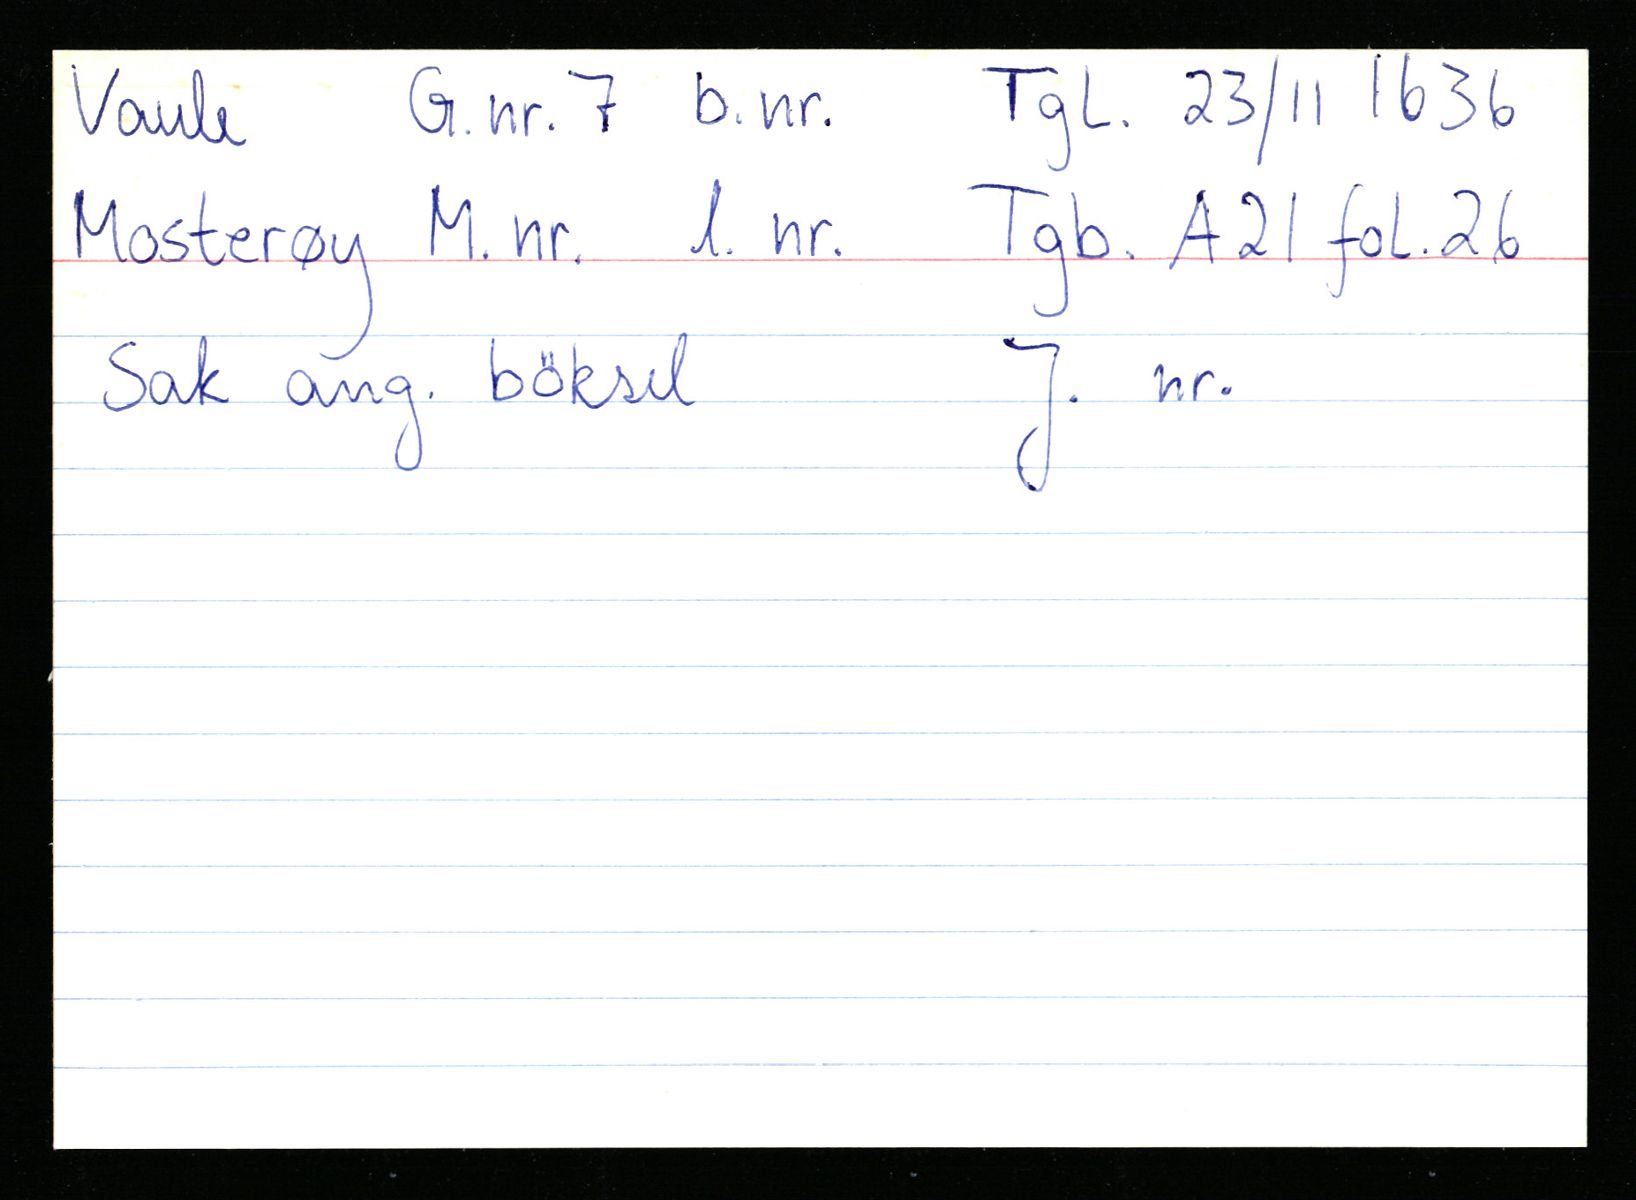 Vaule G.nr. 7 b.nr. Tgl. 23/11 1636
Mosterøy M.nr. l.nr. Tgb. A21 fol.26
Sak ang. böksel J. nr.